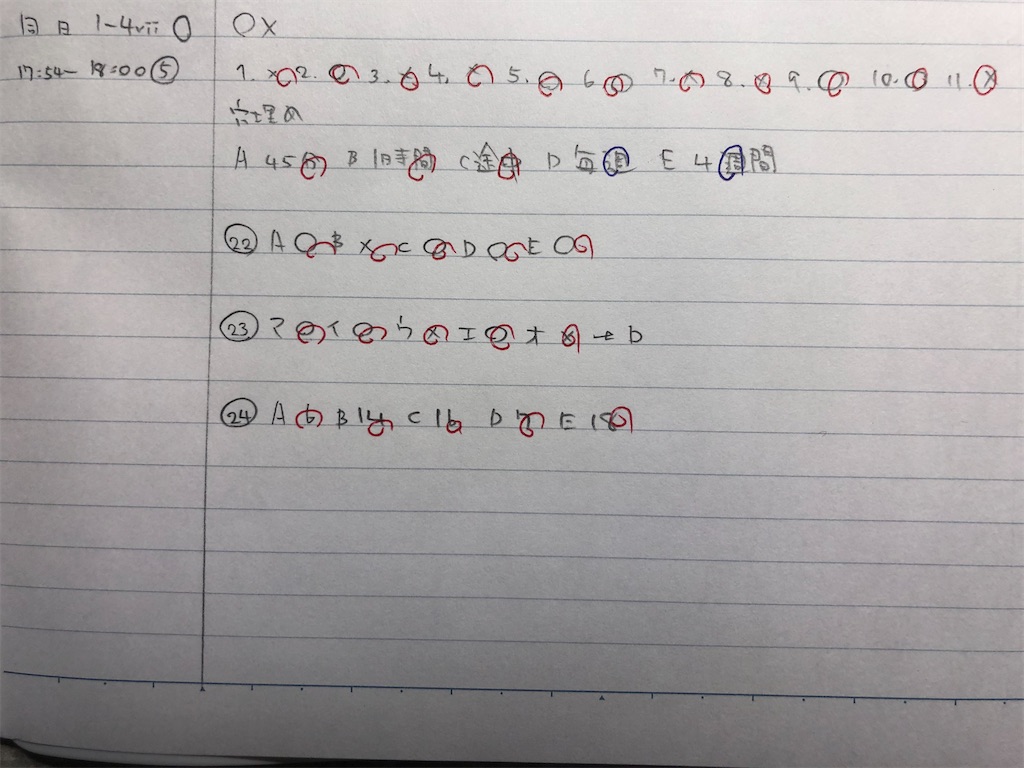 同日 1-4vii
17:54~18:00⑤
○×
1. × 2. ○ 3. × 4. × 5. ○ 6. ○ 7. × 8. × 9. ○ 10. ○ 11. ×
穴埋め
A 45分 B 1時間 C 途中 D 毎週 E 4週間
㉒ A ○ B × C ○ D ○ E ○
㉓ ア ○ イ ○ ウ × エ ○ オ × → D
㉔ A 6 B 14 C 16 D E 18